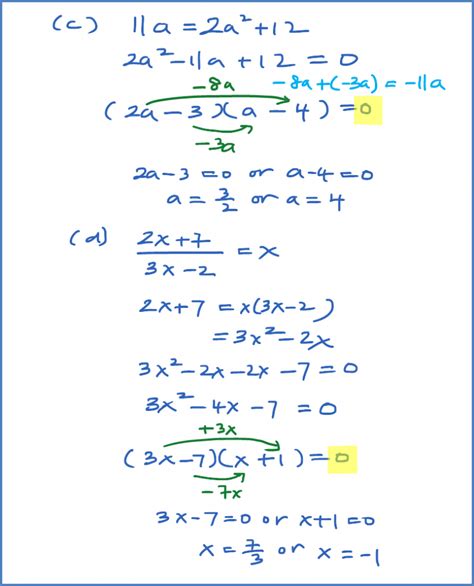 (c) 11a = 2a² + 12
2a² - 11a + 12 = 0
-8a -8a + (-3a) = -11a
(2a - 3)(a - 4) = 0
-3a
2a - 3 = 0 or a - 4 = 0
a = 3/2 or a = 4
(d) (2x + 7)/(3x - 2) = x
2x + 7 = x(3x - 2)
= 3x² - 2x
3x² - 2x - 2x - 7 = 0
3x² - 4x - 7 = 0
+3x
(3x - 7)(x + 1) = 0
-7x
3x - 7 = 0 or x + 1 = 0
x = 7/3 or x = -1